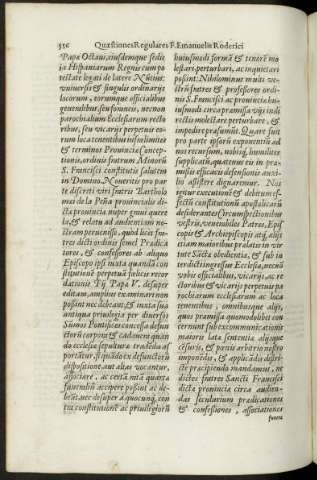 350 Quæstiones Regulares F. Emanuelis Roderici
Papæ Octaui, eiusdemque sedis
in Hispaniarum Regnis cum po
testate legati de latere Nũtius:
vniuersis & singulis ordinarijs
locorum, eorumque officialibus
generalibus, seu foraneis, necnon
parochialium Ecclesiarum recto
ribus, seu vicarijs perpetuis eo-
rum loca tenentibus infra limites
& terminos Prouinciæ Concep-
tionis, ordinis fratrum Minorũ
S. Francisci constitutis salutem
in Domino. Noueritis pro par
te discreti viri fratris Bartholo
mei de la Peña prouincialis di-
cta prouincia nuper gnuis quere
la, & relatu ad audientiam no-
stram peruenisse, quòd licet fra-
tres dicti ordinis semel Prædica
tores, & confessores ab aliquo
Episcopo ipsi iuxta quandã con
stitutionẽ perpetuã fœlicis recor
dationis Pij Papæ V. desuper
editam, amplius examinari non
possint nec debeant; & iuxta sua
antiqua priuilegia per diuersos
Sũmos Põtifices concessa defun
ctorũ corpora & cadauera quan
do ecclesia sepultura tradẽda as
portãtur, si quidẽ ex defunctorũ
dispositione, aut alias vocantur,
associare, ac certã m̃tã quarta
funeralis accipere possint ac de-
beãt atec desuper à quocunq, con
tra constitutionẽ ac priuilegiorũ
huiusmodi formã & tenore mo
lestari, perturbari, ac inquietari
possint: Nihilominus multi ve-
strũ fratres & professores ordi-
nis S. Francisci ac prouinciæ hu-
iusmodi circa præmissa vijs indi
rectis molestare perturbare, &
impedire præsumũt. Quare fuit
pro parte ipsorũ exponentiũ ad
nos recursum, nobisq, humiliter
supplicatũ, quatenus eis in præ-
missis efficacis defensionis auxi-
lio assistere dignaremur. Nos
igitur executioni & debito ef-
fectũ constitutionũ apostolicarũ
desiderantes Circumspectionibus
vestris, venerabiles Patres, Epis
copis & Archiepiscopis ac alijs
etiam maioribus prælatis in vir
tute Sãctæ obedientiæ, & sub in
terdicti ingressus Ecclesiæ, necnõ
vobis officialibus, vicarijs, ac re
ctoribus & vicarijs perpetuis pa
rochiarum ecclesiarum ac loca
tenentibus, omnibusque alijs,
quos præmissa quomodolibet con
cernunt sub excommunicationis
maioris latæ sententiæ, alijsque
cẽsuris, & pœnis arbitrio nostro
imponẽdis, & applicãdis distri-
cte præcipiendo mandamus, ne
dictos fratres Sancti Francisci
dicta prouincia circa audien-
das sæcularium prædicationes
& confessiones, associationes
funera